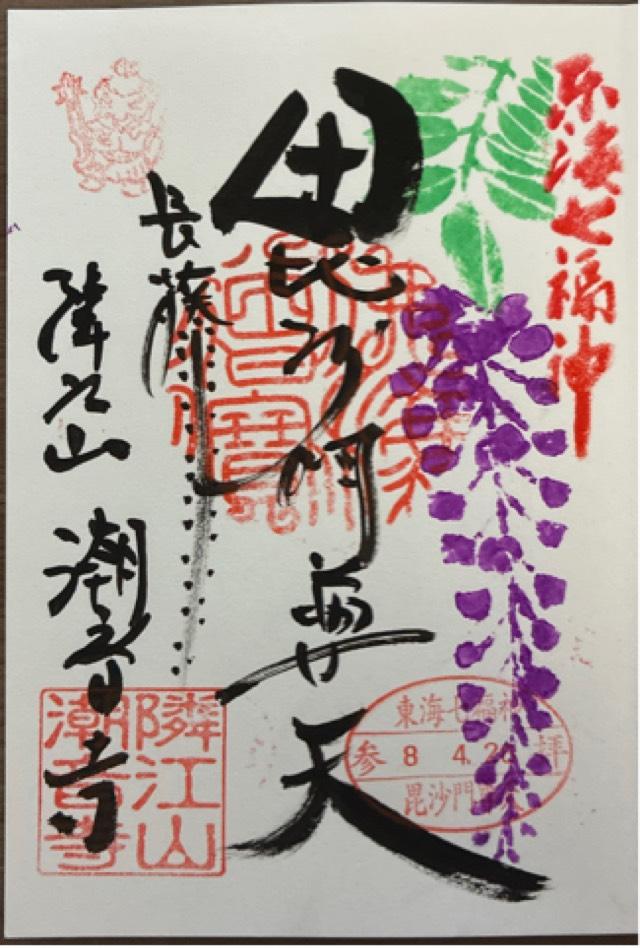 東海七福神
毘沙門尊天
長藤
隣江山 潮音寺
東海七福神
参 8 4. 拝
毘沙門
隣江山
潮音寺